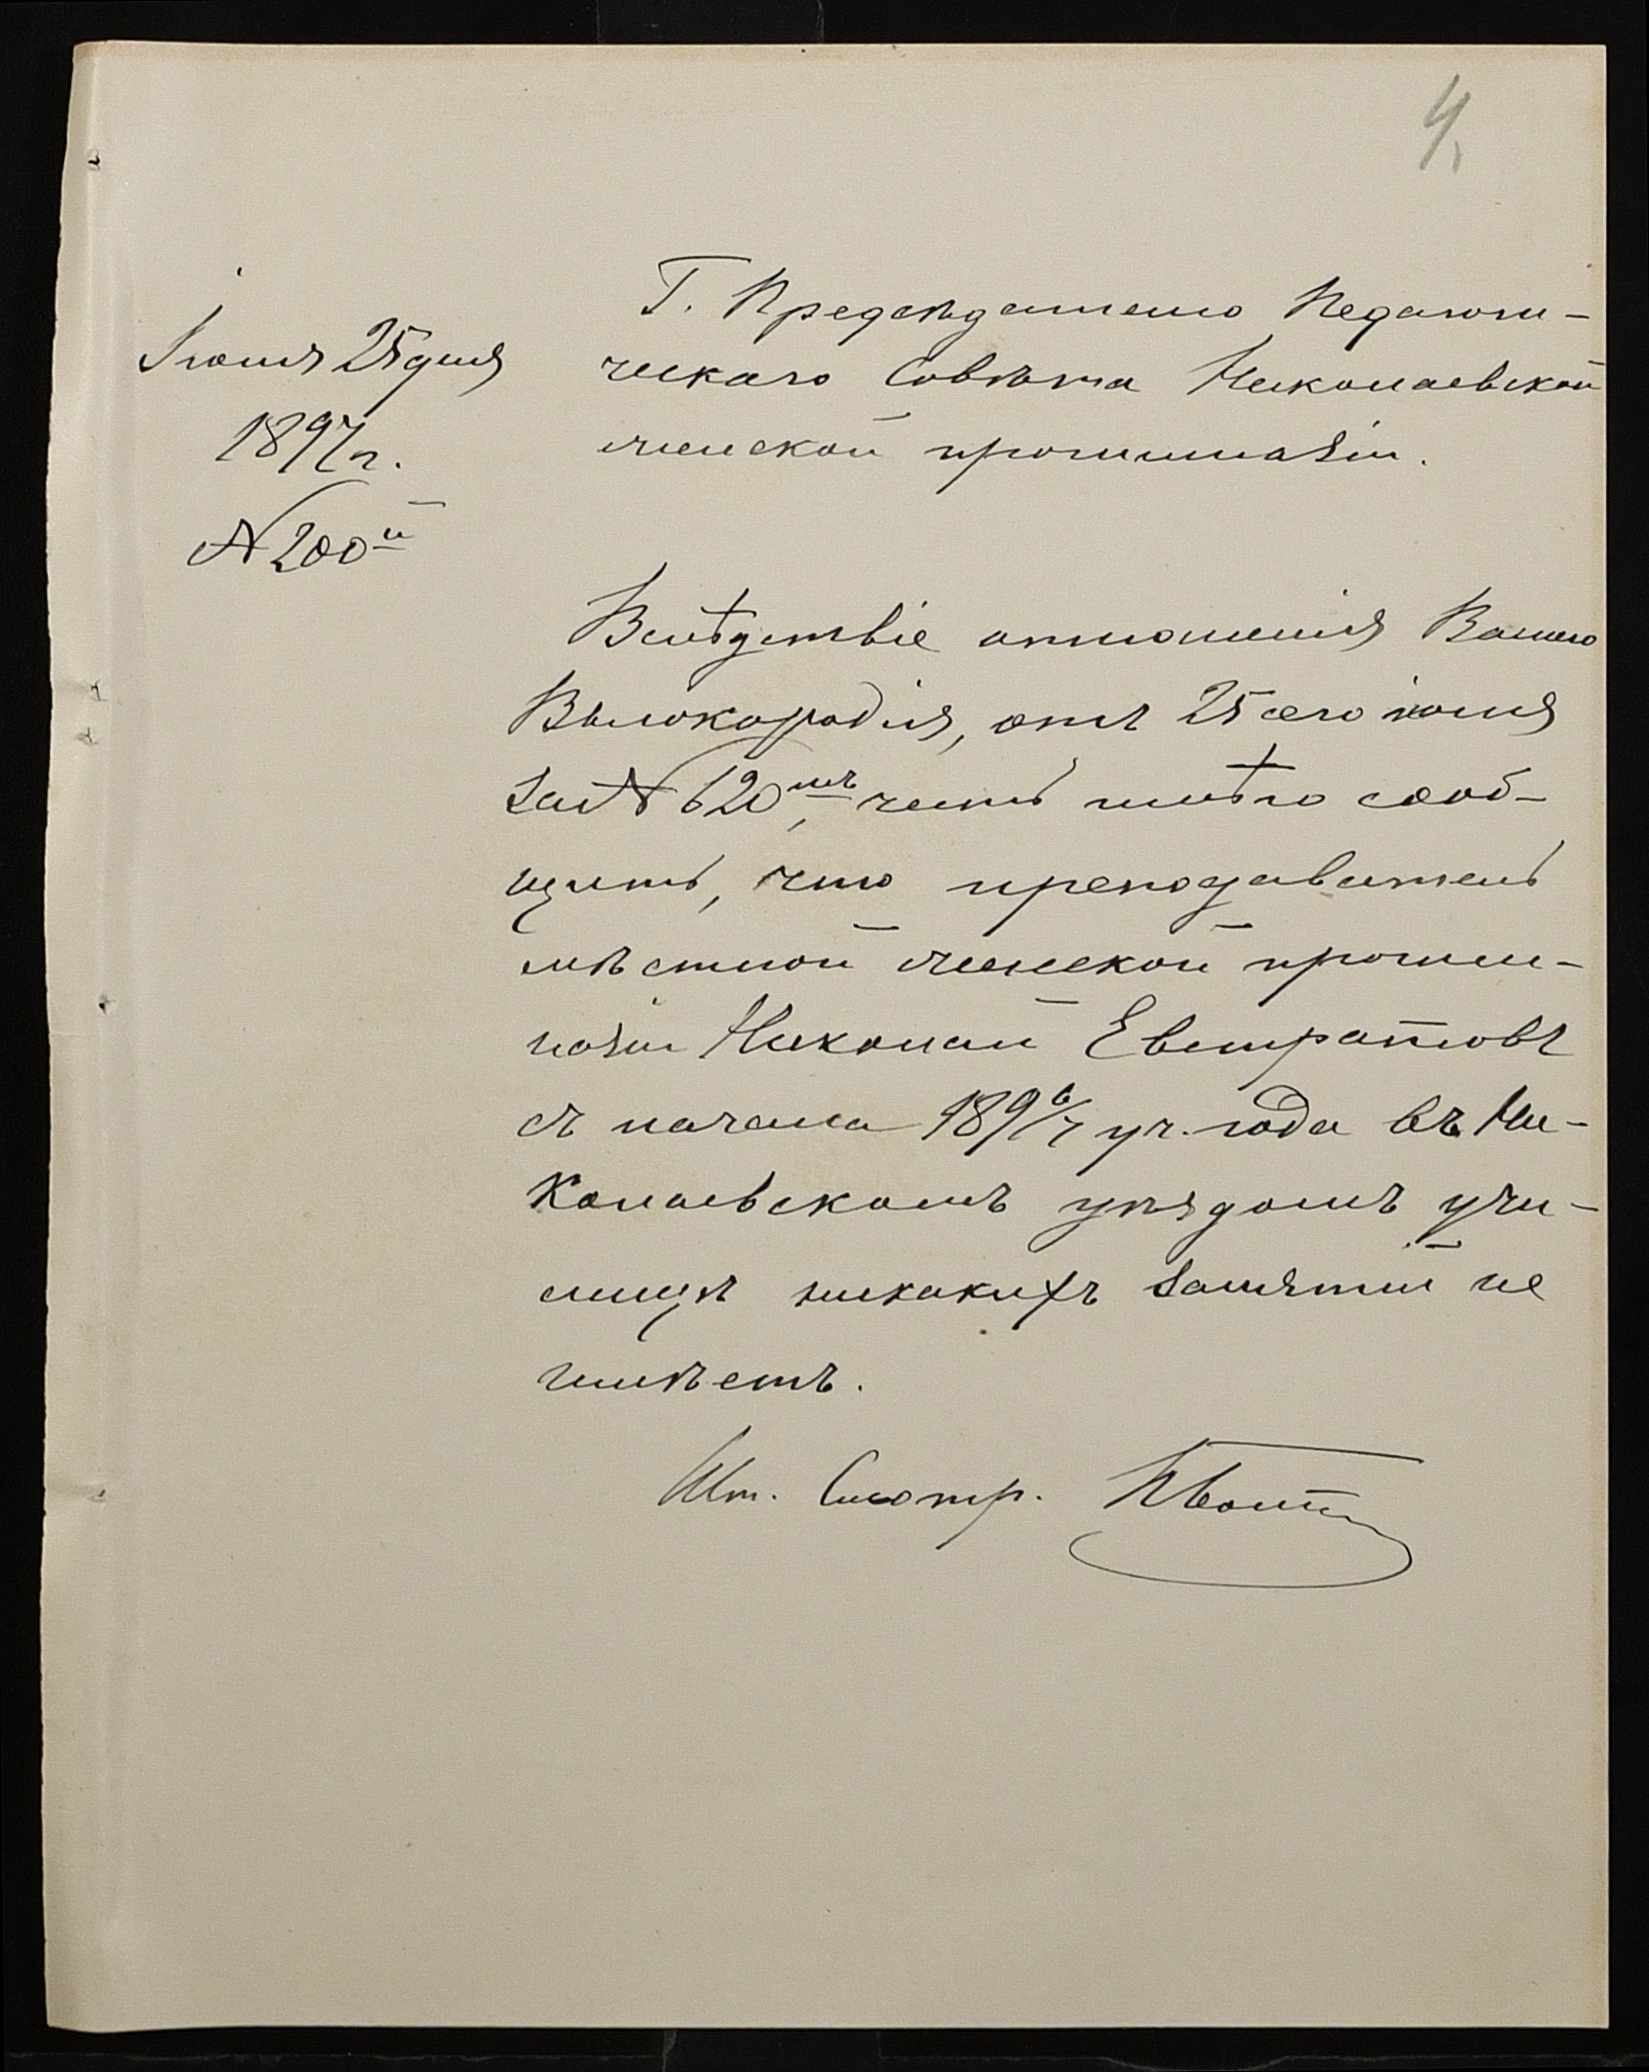 4.
Іюня 25 дня
1897 г.
№ 200й
Г. Предсѣдателю Педагоги-
ческаго Совѣта Николаевской
женской прогимназіи.
Вслѣдствіе отношенія Вашего
Высокородія, отъ 25 сего іюня
за № 620мъ, честь имѣю сооб-
щить, что преподаватель
мѣстной женской прогим-
назіи Николай Евстратовъ
съ начала 1896/7 уч. года въ Ни-
колаевскомъ уѣздомъ учи-
лищѣ никакихъ занятій не
имѣетъ.
Шт. Смотр.